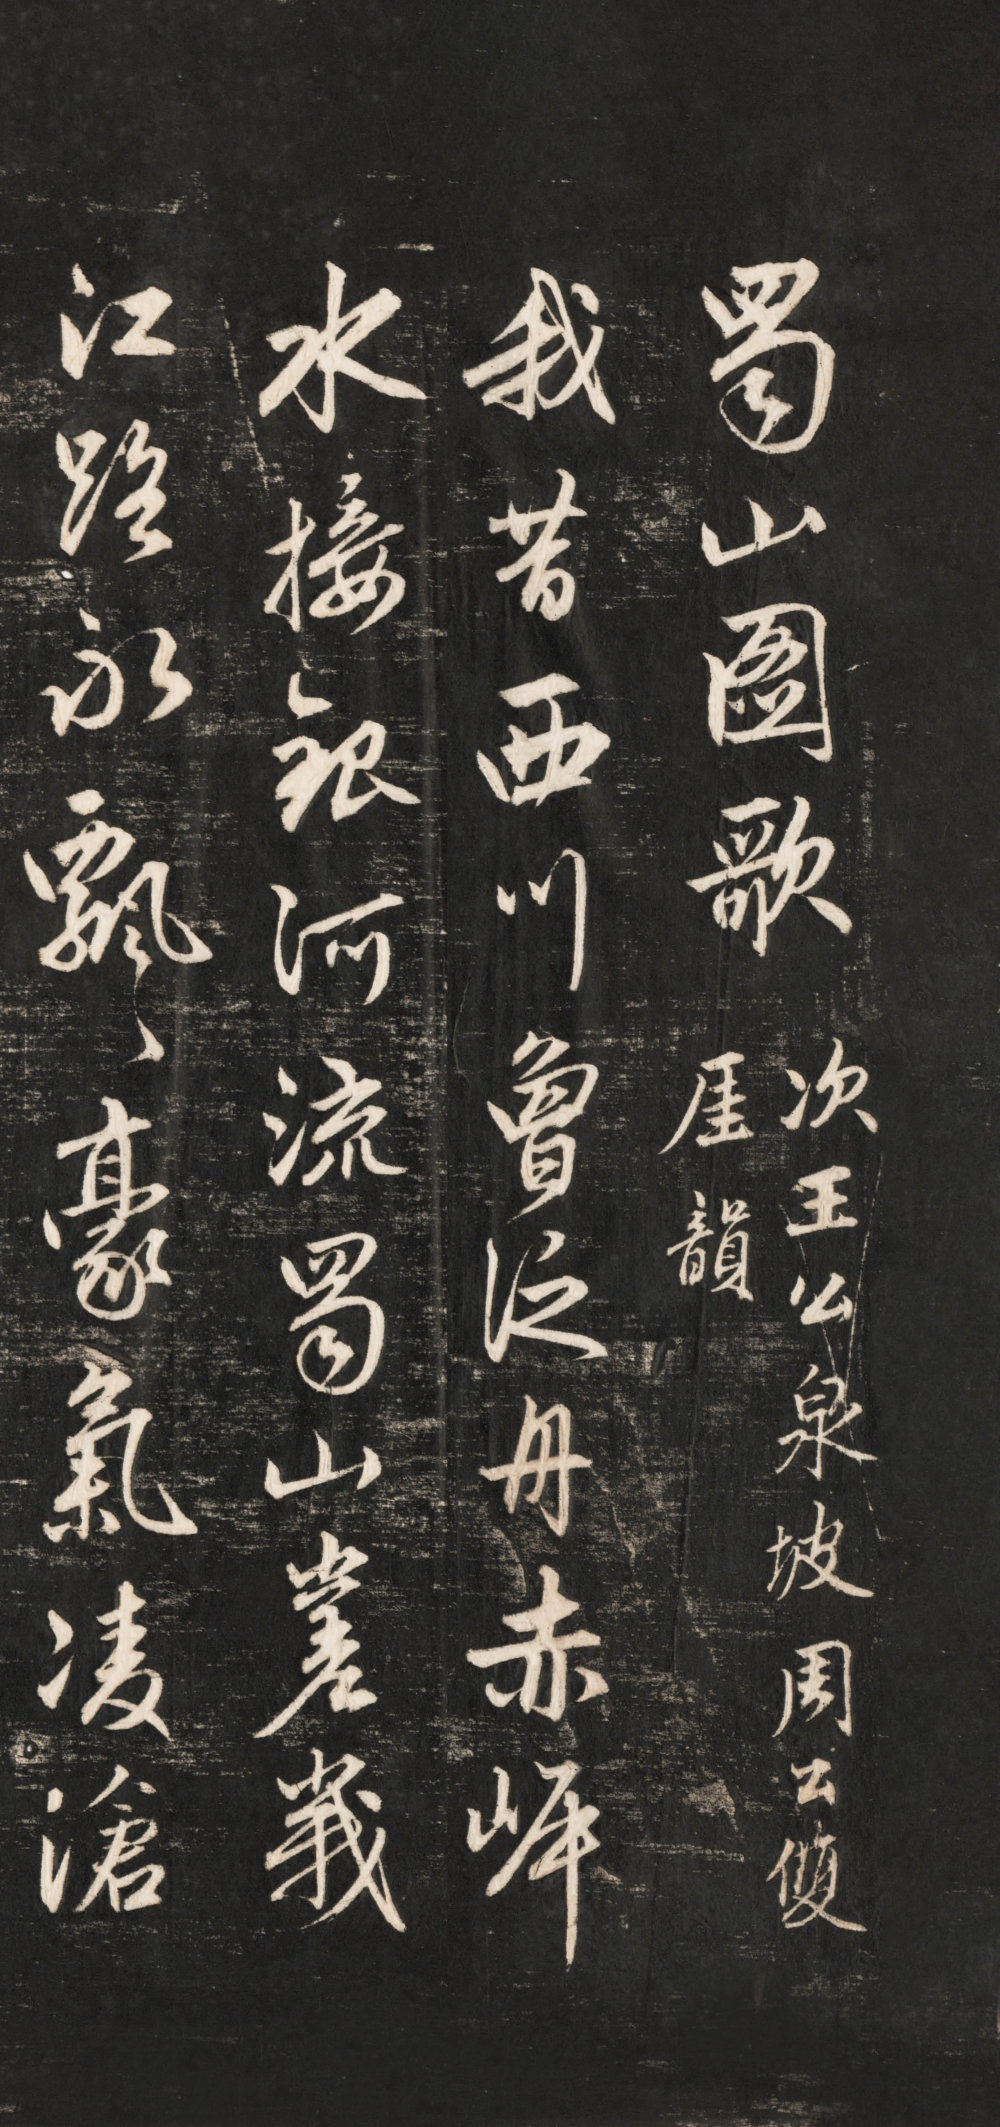 蜀山圖歌
次王公泉坡周公雙
厓韻
我昔西川曾泛舟赤岸
水接銀河流蜀山岩峩
江路永飄〻豪氣凌滄